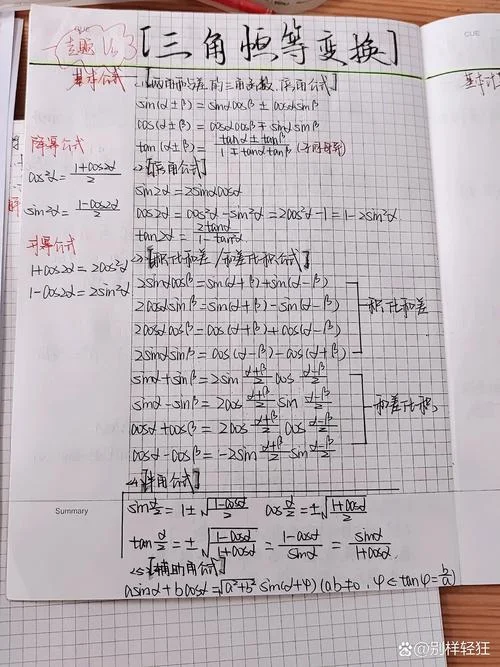 CUE
专题
[三角恒等变换]
CUE
基本公式
<1>[两角和与差的三角函数.倍角公式]
sin(α±β)=sinαcosβ±cosαsinβ
cos(α±β)=cosαcosβ∓sinαsinβ
tan(α±β)=\frac{tanα±tanβ}{1∓tanαtanβ}
降幂公式
cos²α=\frac{1+cos2α}{2}
sin²α=\frac{1-cos2α}{2}
升幂公式
1+cos2α=2cos²α
1-cos2α=2sin²α
<2>[倍角公式]
sin2α=2sinαcosα
cos2α=cos²α-sin²α=2cos²α-1=1-2sin²α
tan2α=\frac{2tanα}{1-tan²α}
<3>[积化和差/和差化积公式]
2sinαcosβ=sin(α+β)+sin(α-β)
2cosαsinβ=sin(α+β)-sin(α-β)
2cosαcosβ=cos(α+β)+cos(α-β)
2sinαsinβ=cos(α-β)-cos(α+β)
积化和差
sinα+sinβ=2sin\frac{α+β}{2}cos\frac{α-β}{2}
sinα-sinβ=2cos\frac{α+β}{2}sin\frac{α-β}{2}
cosα+cosβ=2cos\frac{α+β}{2}cos\frac{α-β}{2}
cosα-cosβ=-2sin\frac{α+β}{2}sin\frac{α-β}{2}
和差化积
<4>[半角公式]
Summary
sin\frac{α}{2}=1±\sqrt{\frac{1-cosα}{2}} cos\frac{α}{2}=±\sqrt{\frac{1+cosα}{2}}
tan\frac{α}{2}=±\sqrt{\frac{1-cosα}{1+cosα}}=\frac{1-cosα}{sinα}=\frac{sinα}{1+cosα}
<5>[辅助角公式]
asinα+bcosα=\sqrt{a²+b²}sin(α+φ)(ab≠0,φ<tanφ=\frac{b}{a})
@别样轻狂